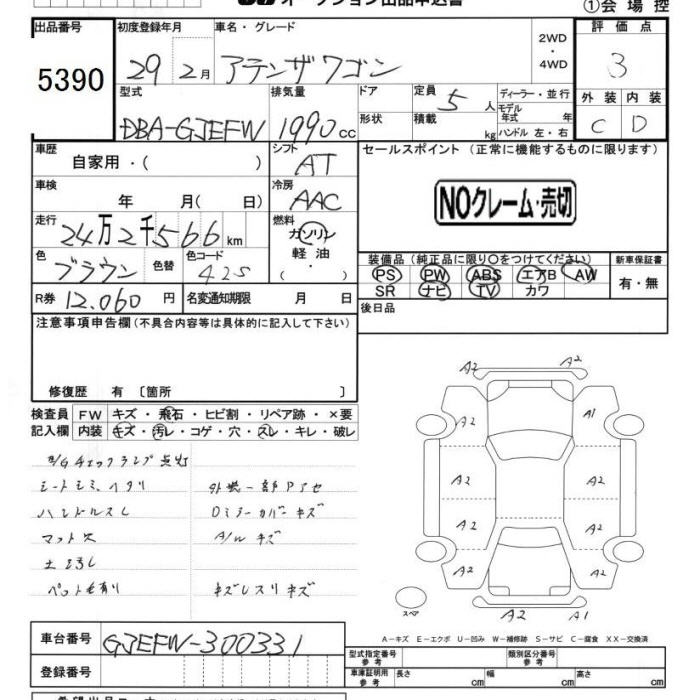 オークション出品申込書
①会場控
出品番号
5390
初度登録年月
29年2月
車名・グレード
アテンザワゴン
2WD
・
4WD
評価点
3
型式
DBA-GJEFW
排気量
1990cc
ドア
形状
定員 5人
積載 kg
ディーラー・並行
モデル年式 年
ハンドル 左・右
外装 内装
C D
車歴 自家用・( )
シフト AT
セールスポイント (正常に機能するものに限ります)
車検 年 月( 日)
冷房 AAC
NOクレーム・売切
走行 24万2千566km
燃料 ガソリン
軽油・
・
色 ブラウン 色替 色コード 42S
装備品(純正品に限り○をつけてください)
PS PW ABS エアB AW
SR ナビ TV カワ
新車保証書
有・無
R券 12.060円 名変通知期限 月 日
後日品
注意事項申告欄(不具合内容等は具体的に記入して下さい)
修復歴 有〔箇所 〕
検査員記入欄 FW キズ・飛石・ヒビ割・リペア跡・×要
内装 キズ・汚レ・コゲ・穴・スレ・キレ・破レ
E/Gチェックランプ点灯
シートシミ、ヘタリ 外装一部アセ
ハンドルスレ Dミラーカバーキズ
マット欠 A/Wキズ
土ヨゴレ
ペット毛有り キズレスリキズ
A2 A2
A2 A1
A2 A2
A2 A2
A2 A2
スペア A2 A1
A－キズ E－エクボ U－凹み W－補修跡 S－サビ C－腐食 XX－交換済
車台番号 GJEFW-300331
登録番号
型式指定番号 参考
類別区分番号 参考
車庫証明用 参考 長さ cm 幅 cm 高さ cm